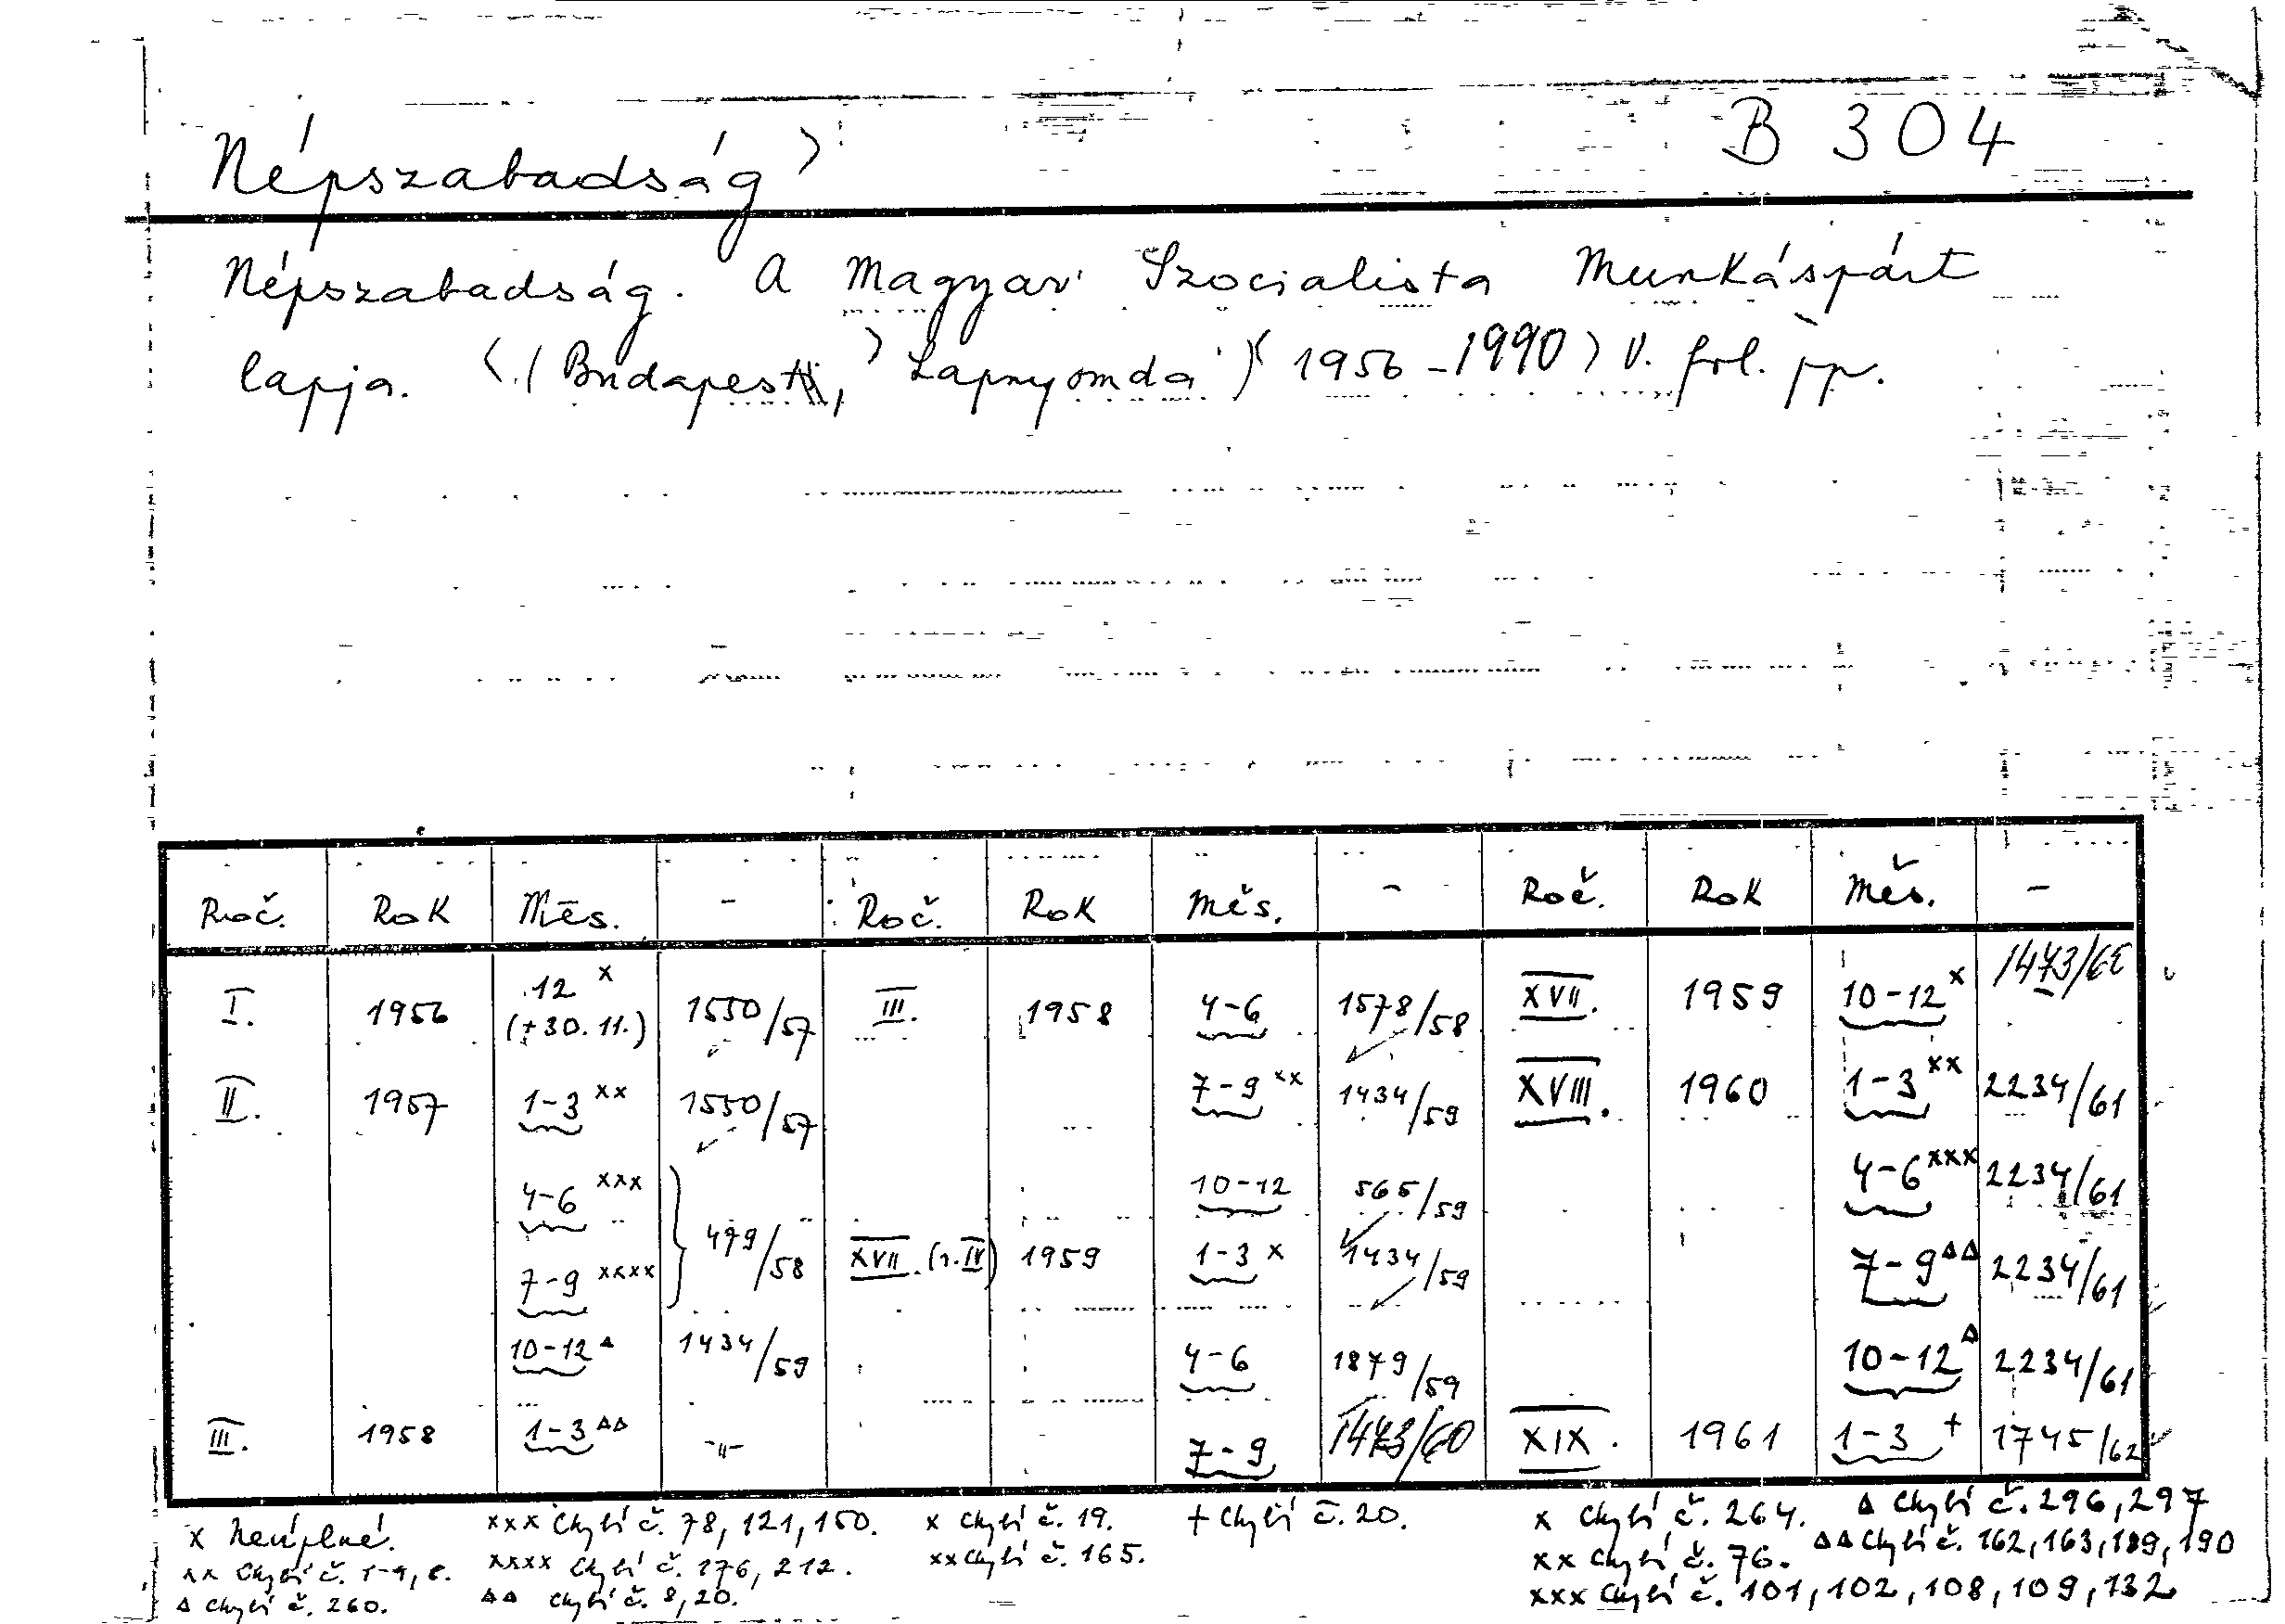 Népszabadság >
B 304
Népszabadság. A Magyar Szocialista Munkáspárt
lapja. <(Budapest, > Lapnyomda) <1956-1990> V. fol. pp.
Roč. Rok Měs. - Roč. Rok Měs. - Roč. Rok Měs. -
I. 1956 12 x (+30.11.) 1550/57 III. 1958 4-6 1578/58 XVII. 1959 10-12 x
II. 1957 1-3 xx 1550/57 7-9 xx 1434/59 XVIII. 1960 1-3 xx 2234/61
4-6 xxx 479/58 10-12 565/59 4-6 xxx 2234/61
7-9 xxxx XVII. (r. IV) 1959 1-3 x 1434/59 7-9 ΔΔ 2234/61
10-12 Δ 1434/59 4-6 1879/59 10-12 Δ 2234/61
III. 1958 1-3 ΔΔ -"- 7-9 1473/60 XIX. 1961 1-3 + 1745/62
x Neúplné.
xx Chybí č.
Δ Chybí č. 260.
xxx Chybí č. 78, 121, 150.
xxxx Chybí č. 176, 212.
ΔΔ Chybí č. 8, 20.
x Chybí č. 19.
xx Chybí č. 165.
+ Chybí č. 20.
x Chybí č. 264.
xx Chybí č. 76.
xxx Chybí č. 101, 102, 108, 109, 132
Δ Chybí č. 296, 297
ΔΔ Chybí č. 162, 163, 189, 190